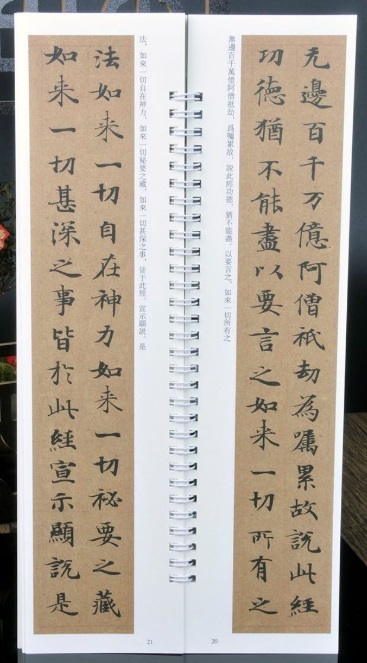 無邊百千萬億阿僧祇劫、爲囑累故、說此經功德、猶不能盡。以要言之、如來一切所有之
无邊百千万億阿僧祇劫為囑累故說此經
功德猶不能盡以要言之如来一切所有之
20
法、如來一切自在神力、如來一切秘要之藏、如來一切甚深之事、皆于此經、宣示顯說。是
法如来一切自在神力如来一切祕要之藏
如来一切甚深之事皆於此經宣示顯說是
21